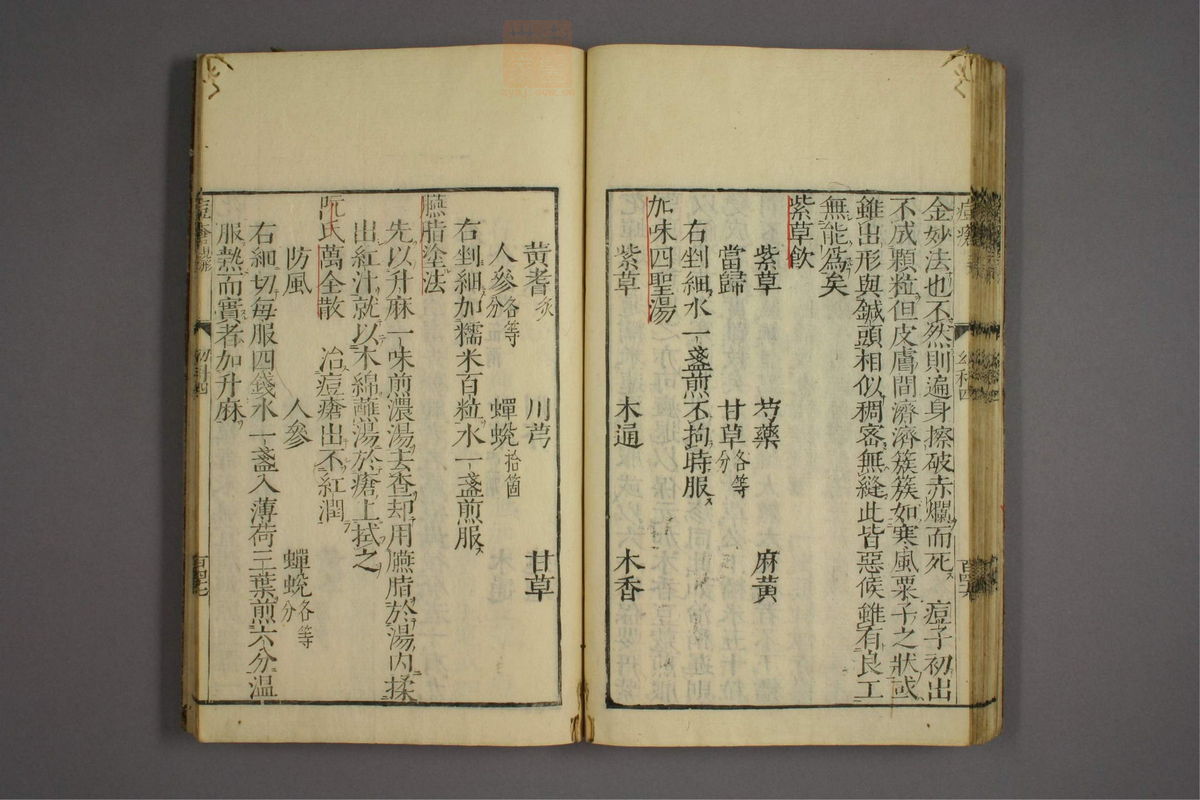 痘瘡
幼科四
金妙法也不然則遍身擦破赤爛而死　痘子初出
不成顆粒但皮膚間濟濟簇簇如寒風粟子之狀或
雖出形與鍼頭相似稠密無縫此皆惡候雖有良工
無能為矣
紫草飲
紫草　芍藥　麻黃
當歸　甘草各等分
右剉細水一盞煎不拘時服
加味四聖湯
紫草　木通　木香
黃耆炙　川芎　甘草
人參各等分　蟬蛻拾箇
右剉細加糯米百粒水一盞煎服
臙脂塗法
先以升麻一味煎濃湯去查却用臙脂於湯内揉
出紅汁就以木綿蘸湯於瘡上拭之
阮氏萬全散　治痘瘡出不紅潤
防風　人參　蟬蛻各等分
右細切每服四錢水一盞入薄荷三葉煎六分溫
服熱而實者加升麻